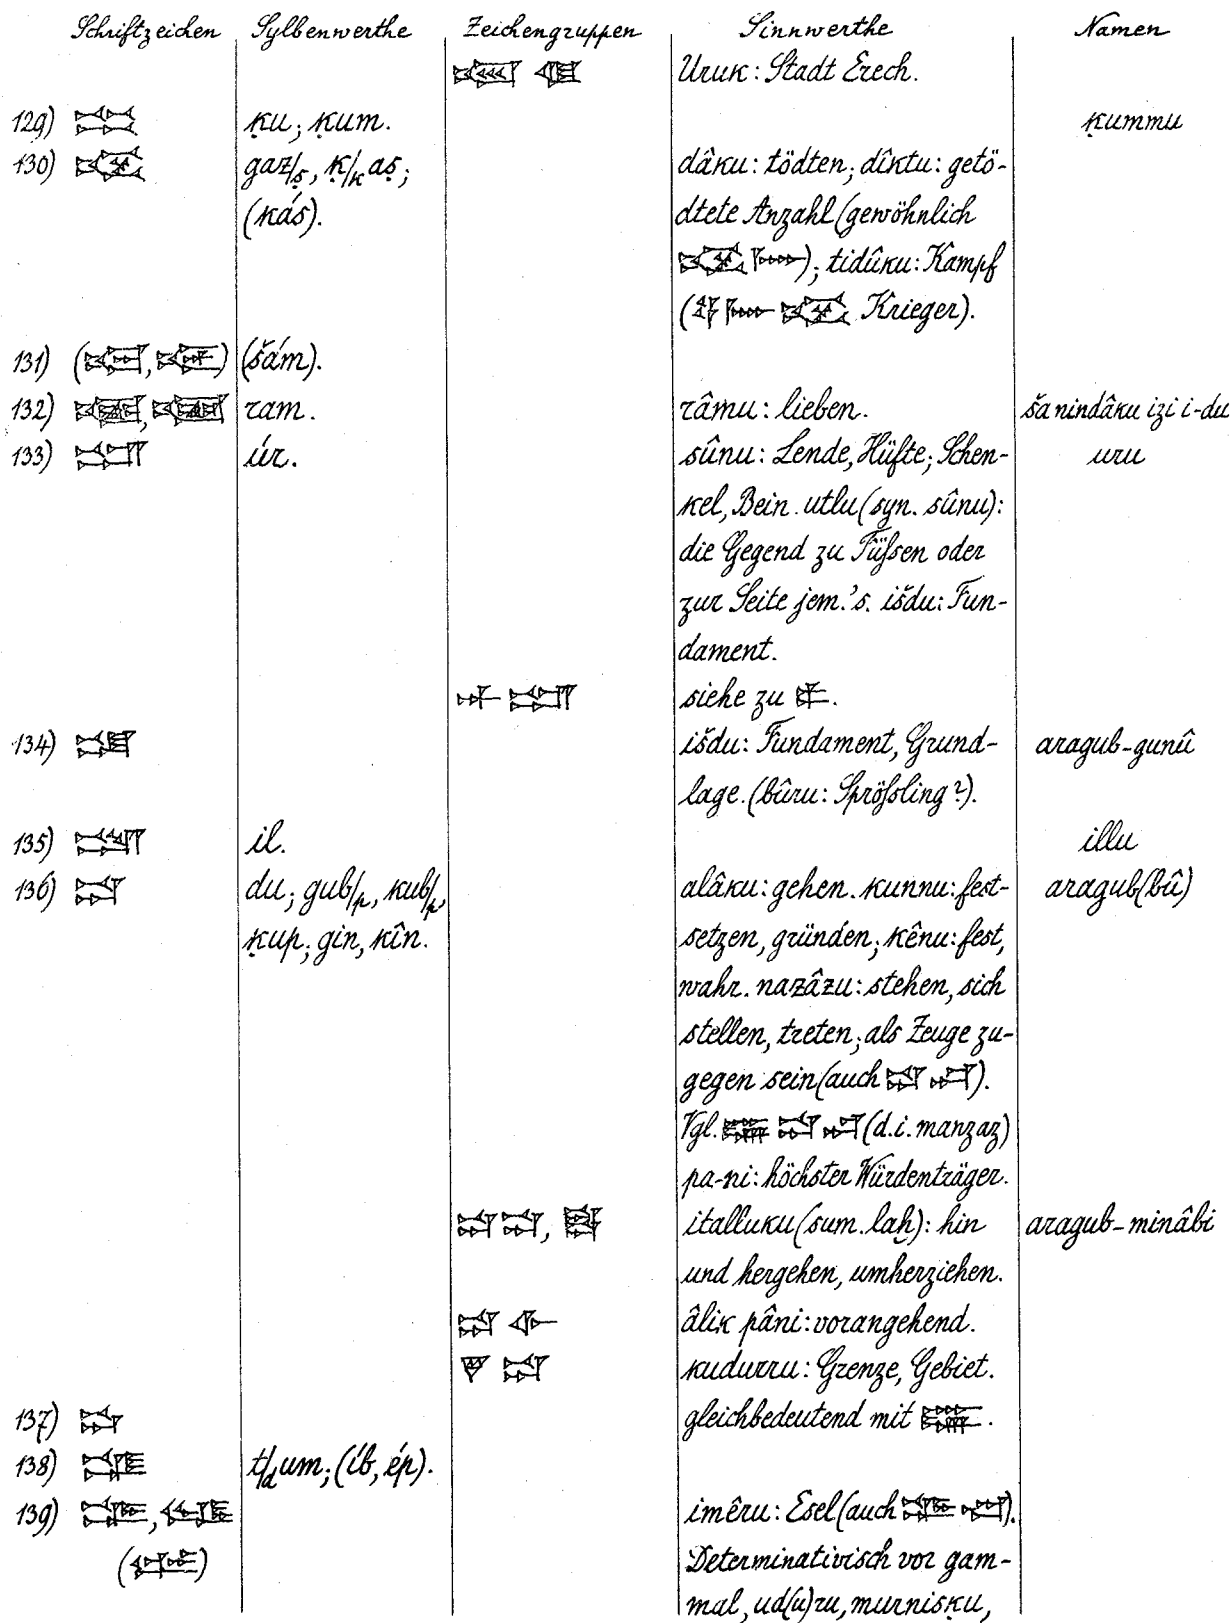 Schriftzeichen Sylbenwerthe Zeichengruppen Sinnwerthe Namen
Uruk: Stadt Erech.
129) ḳu; ḳum. ḳummu
130) gaz/ṣ, ḳ/kaṣ; dâku: tödten; dîktu: getö-
(kás). dtete Anzahl (gewöhnlich
); tidûku: Kampf
( Krieger).
131) ( , ) (šám).
132) , ram. râmu: lieben. ša nindâku izi i-du
133) úr. sûnu: Lende, Hüfte; Schen- uru
kel, Bein. utlu (syn. sûnu):
die Gegend zu Füßen oder
zur Seite jem.'s. išdu: Fun-
dament.
siehe zu .
134) išdu: Fundament, Grund- aragub-gunû
lage. (bûru: Sprößling?).
135) il. illu
136) du; gub/p, kub/p, alâku: gehen. kunnu: fest- aragub(bû)
ḳup; gin, kîn. setzen, gründen; kênu: fest,
wahr. nazâzu: stehen, sich
stellen, treten; als Zeuge zu-
gegen sein (auch ).
Vgl. (d.i. manzaz)
pa-ni: höchster Würdenträger.
, italluku (sum. laḫ): hin aragub-minâbi
und hergehen, umherziehen.
âlik pâni: vorangehend.
kudurru: Grenze, Gebiet.
137) gleichbedeutend mit .
138) t/dum; (íb, ép).
139) , imêru: Esel (auch ).
( ) Determinativisch vor gam-
mal, ud(u)ru, murnisḳu,